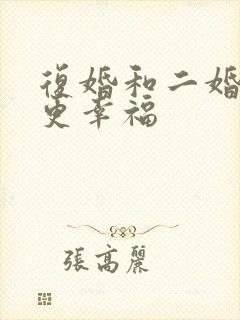 復婚和二婚
更幸福
張高麗